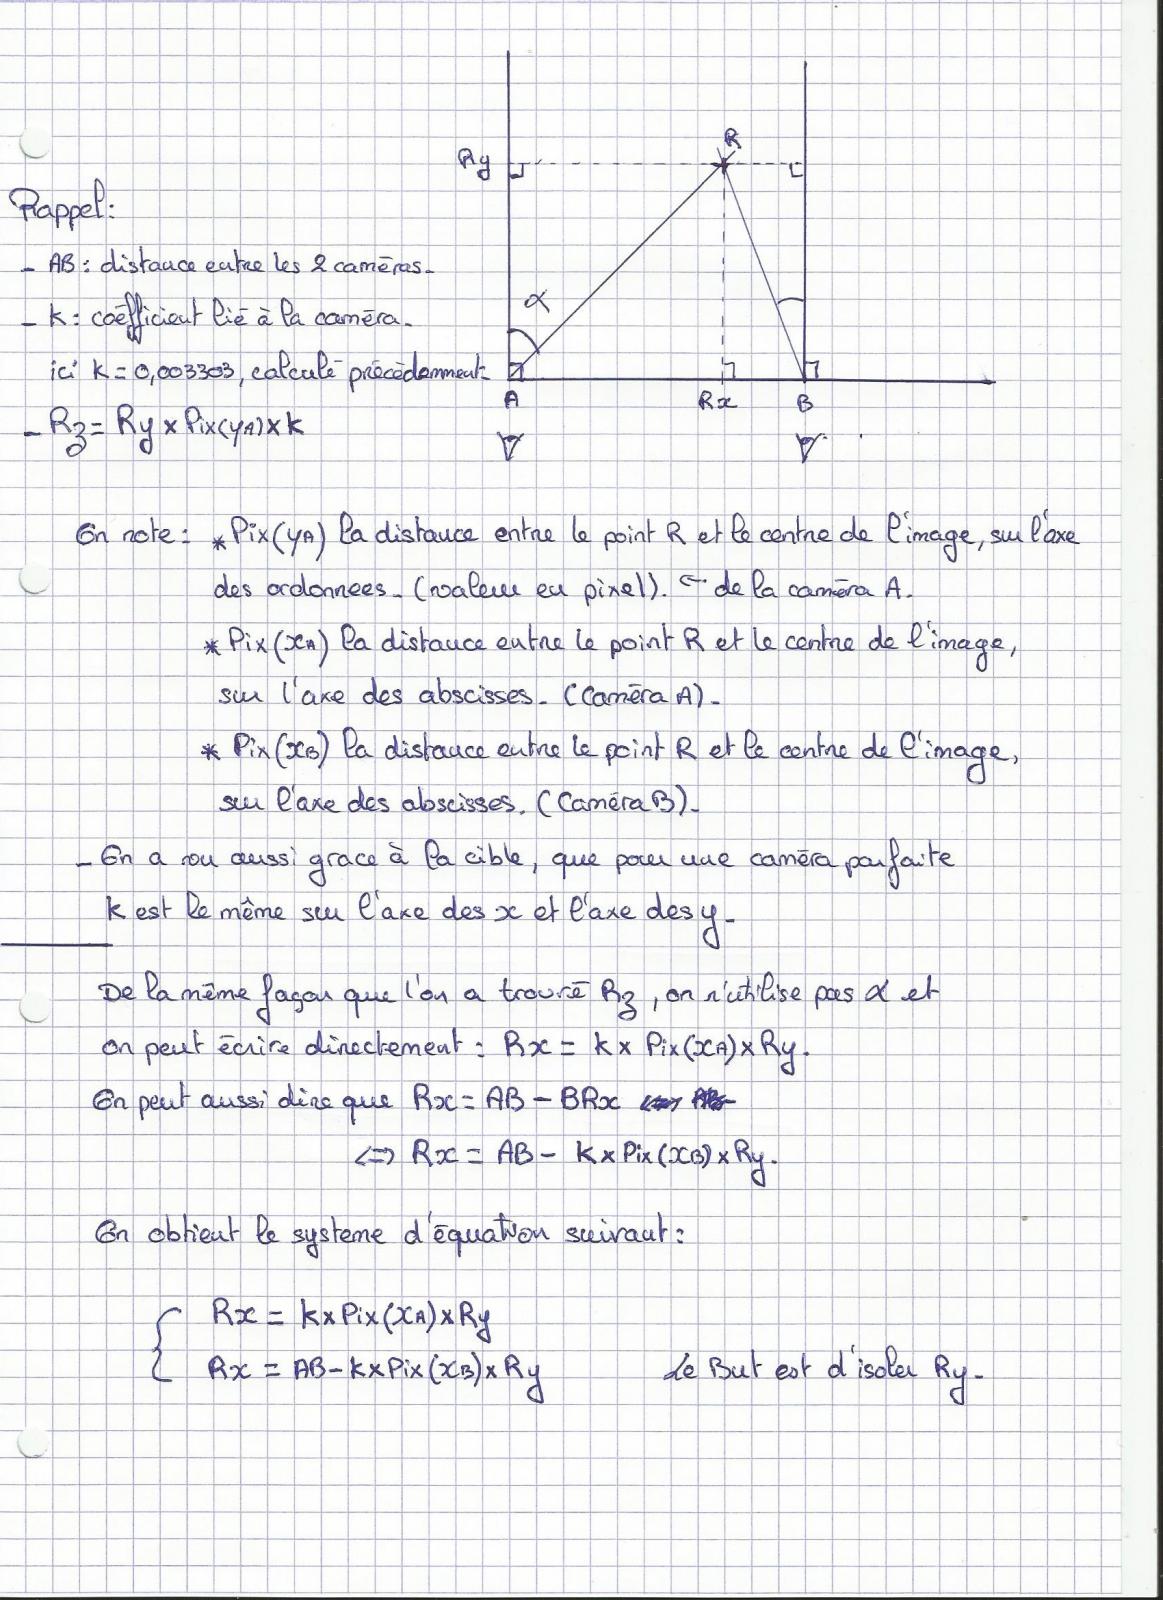 R
Ry
α
A
Rx
B
Rappel:
- AB: distance entre les 2 caméras.
- K: coéfficient lié à la caméra.
ici K = 0,003303, calculé précèdemment
- Rz = Ry x Pix(yA) x K
On note: * Pix(yA) la distance entre le point R et le centre de l'image, sur l'axe
des ordonnees. (valeur en pixel). ← de la caméra A.
* Pix(xA) la distance entre le point R et le centre de l'image,
sur l'axe des abscisses. (Caméra A).
* Pix(xB) la distance entre le point R et le centre de l'image,
sur l'axe des abscisses. (Caméra B).
- On a vu aussi grace à la cible, que pour une caméra parfaite
K est le même sur l'axe des x et l'axe des y.
De la même façon que l'on a trouvé Rz, on n'utilise pas α et
on peut écrire directement: Rx = K x Pix(xA) x Ry.
On peut aussi dire que Rx = AB - BRx
<=> Rx = AB - K x Pix(xB) x Ry.
On obtient le systeme d'équation suivant:
Rx = K x Pix(xA) x Ry
Rx = AB - K x Pix(xB) x Ry
Le But est d'isoler Ry.